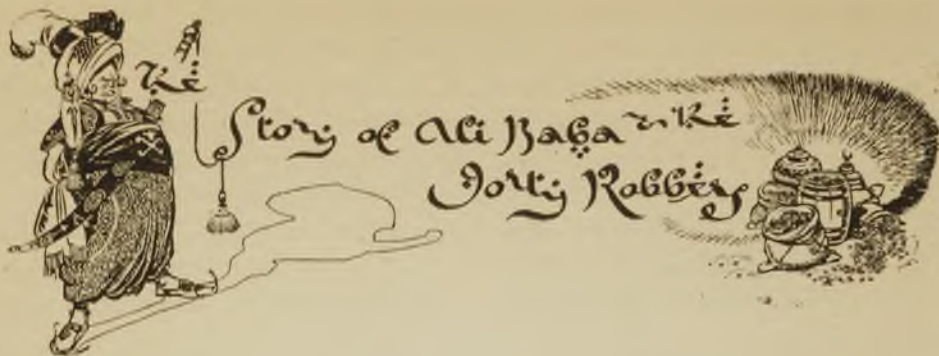 The
Story of Ali Baba & the
Forty Robbers